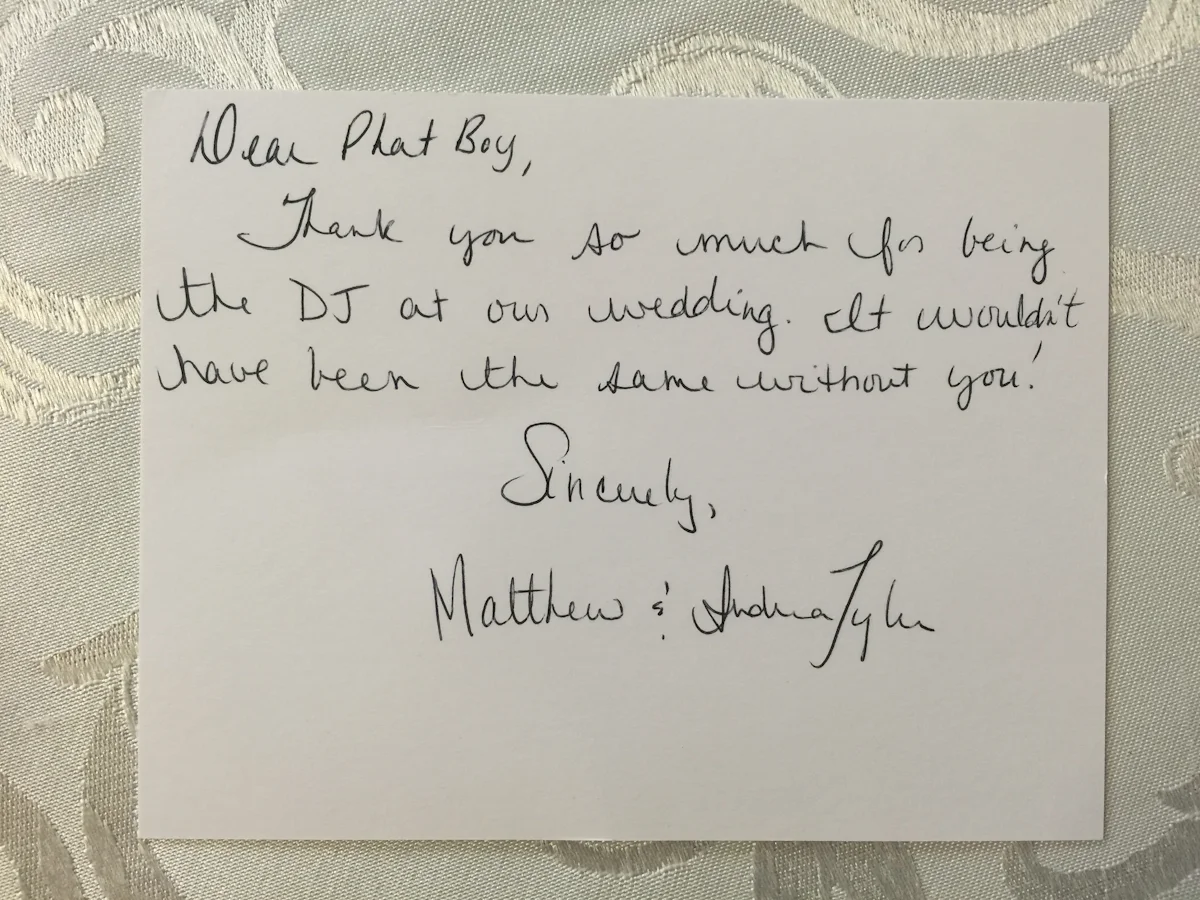 Dear Phat Boy,
Thank you so much for being
the DJ at our wedding. It wouldn't
have been the same without you!
Sincerely,
Matthew & Andrea Tyler